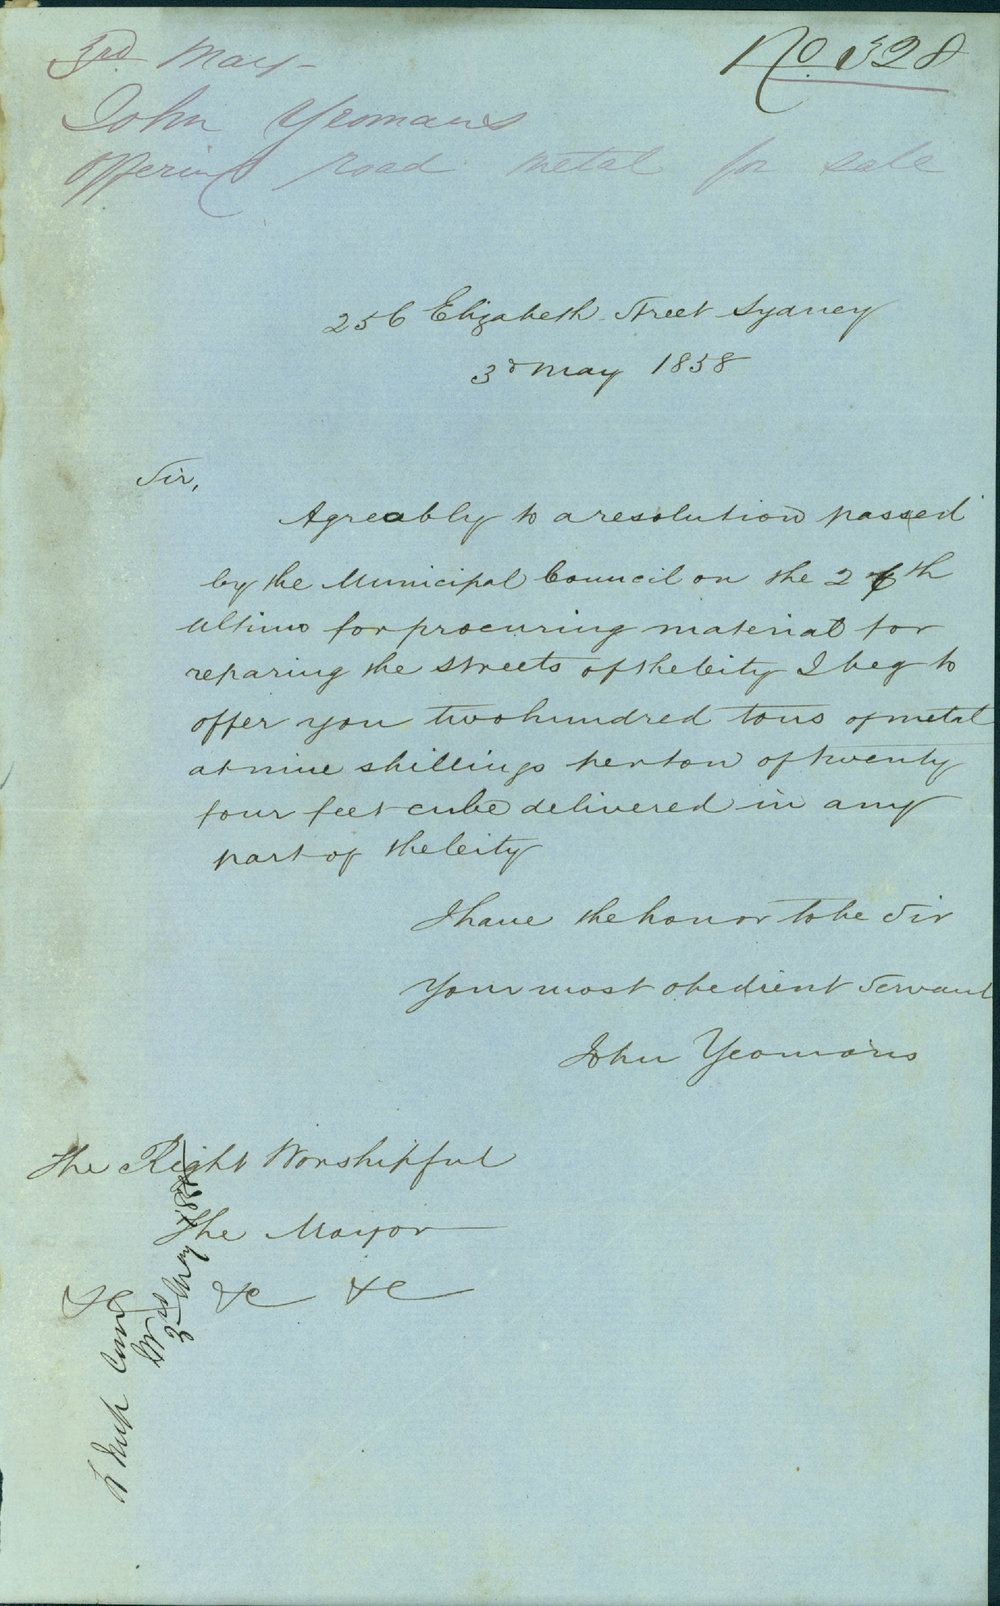 3rd May -
No 328
John Yeomans
Offering road metal for sale
256 Elizabeth Street Sydney
3d May 1858
Sir,
Agreably to a resolution passed
by the Municipal Council on the 2 th
Ultimo for procuring material for
reparing the streets of the City I beg to
offer you two hundred tons of metal
at nine shillings per ton of twenty
four feet cube delivered in any
part of the City
I have the honor to be Sir
Your most obedient Servant
John Yeomans
The Right Worshipful
The Mayor
&c &c &c
Imp Com
3rd May 1858